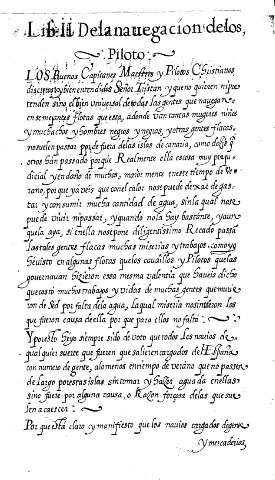 Lib. II De la navegacion de los,
Piloto
LOS Buenos Capitanes Maestres y Pilotos Christianos
discretos y bien entendidos Señor Tristan y quenoquieren ni pre-
tenden sino el bien universal de todas las gentes que navegan
en semejantes flotas que esta, adonde van tantas mugeres niños
y muchachos y hombres negras y negros, y otras gentes flacas,
nosuelen passar por de fuera delas islas de canaria, como dezis q̃
otros han passado porque Realmente ella escosa muy perju
dicial y en daño de muchos, maior mente eneste tiempo de Ve-
rano, por que ya veis que conel calor nose puede dexar de gas-
tar y consumir mucha cantidad de agua, sin la qual nose
puede vivir ni passar, y quando nola hay bastante, y aun-
quela aya, si enella nose pone diligentissimo Recado passa
las tales gentes flacas muchas miserias y trabajos. como yo
he visto en algunas flotas quelos caudillos y Pilotos quelas
governavan hizieron essa mesma valentia que haveis dicho
que costó muchos trabajos y vidas de muchas gentes que murie
ron de sed por falta dela agua, la qual miseria nosintieron los
que fueron causa della por que para ellos no faltó
Y por esto hejo siempre sido de voto que todos los navios de
qualquier suerte que fueren que salieren cargados del España
con numero de gente, alomenos entiempo de verano que no passen
de largo por estas islas sin tomar y hazer aguada en ellas
sino fuere por alguna causa, o Razon forçosa delas que sue
len acaescer
Por que está claro y manifiesto que los navios cargados de gente
Y mercaderias,